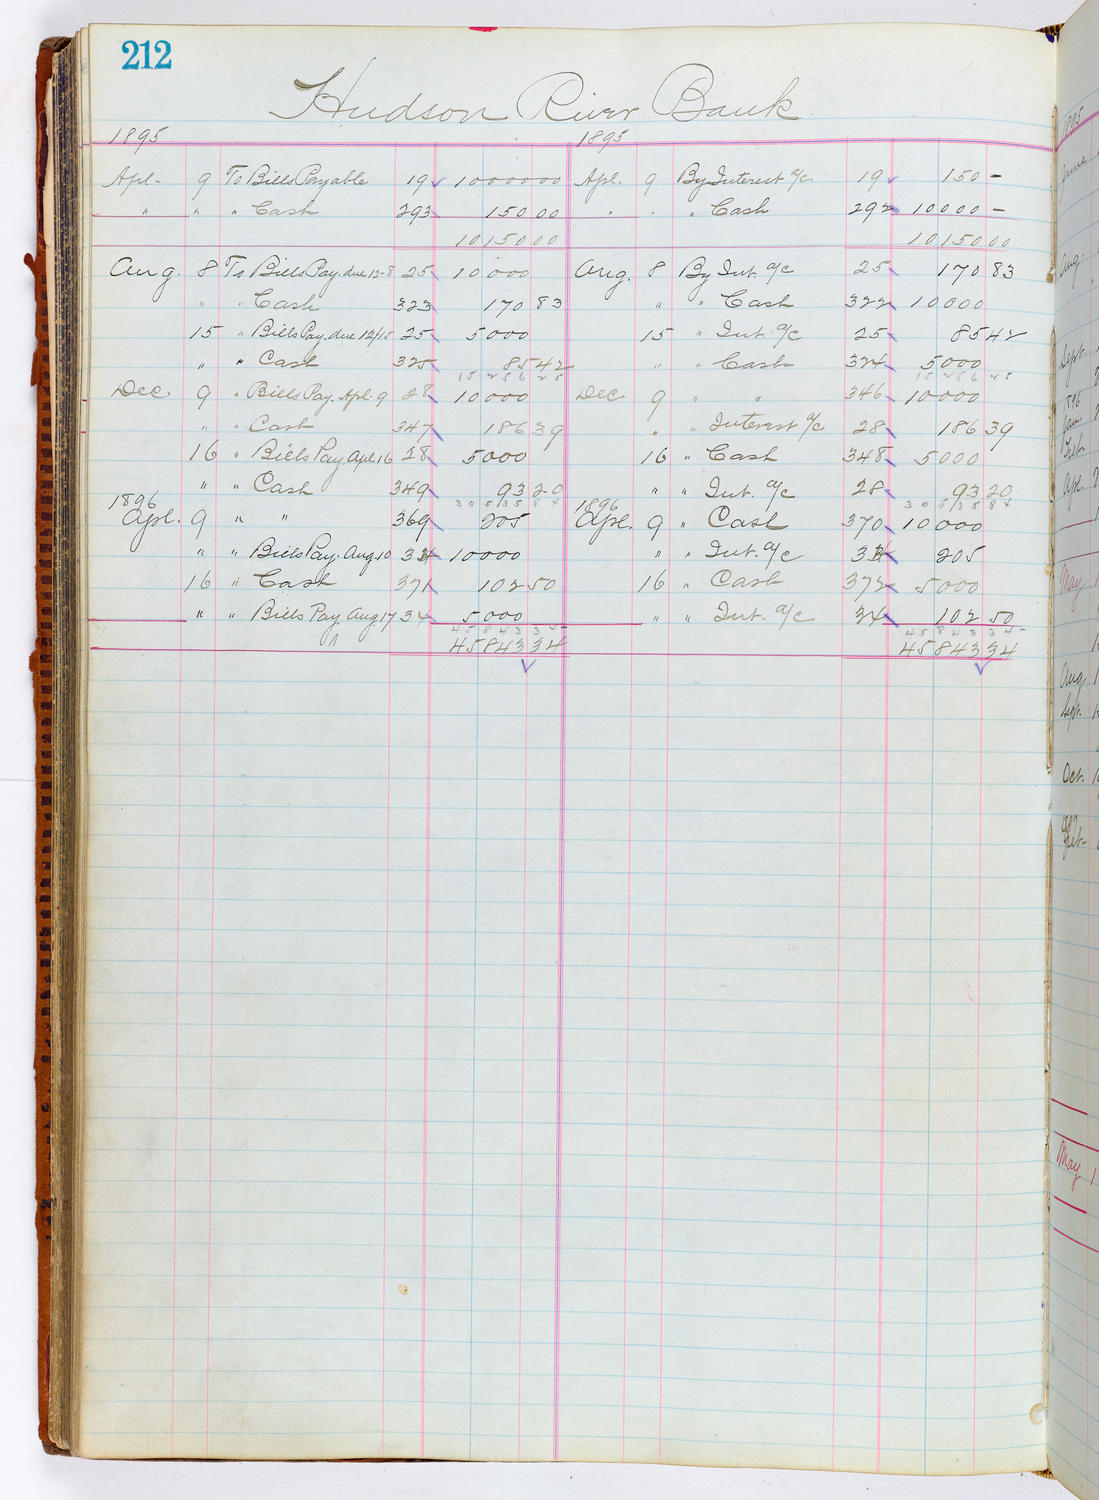 212
Hudson River Bank
1895 1895
Apl. 9 To Bills Payable 19 10000 00 Apl. 9 By Interest a/c 19 150 -
" " " Cash 293 150 00 " " " Cash 292 10000 -
10150 00 10150 00
Aug. 8 To Bills Pay. due 12-8 25 10000 Aug. 8 By Int. a/c 25 170 83
" " Cash 323 170 83 " " Cash 322 10000
15 " Bills Pay. due 12/15 25 5000 15 " Int. a/c 25 85 42
" " Cash 325 85 42 " " Cash 324 5000
15 256 25 15 256 25
Dec. 9 " Bills Pay. Apl. 9 28 10000 Dec. 9 " " 346 10000
" " Cash 347 186 39 " " Interest a/c 28 186 39
16 " Bills Pay. Apl 16 28 5000 16 " Cash 348 5000
" " Cash 349 93 20 " " Int. a/c 28 93 20
30 535 84 30 535 84
1896 1896
Apl. 9 " " 369 205 Apl. 9 " Cash 370 10000
" " Bills Pay. Aug 10 34 10000 " " Int. a/c 34 205
16 " Cash 371 102 50 16 " Cash 372 5000
" " Bills Pay Aug 17 34 5000 " " Int. a/c 34 102 50
45 843 34 45 843 34
45843 34 45843 34
1895
June
Aug.
Sept.
1896
Jan.
Feb.
Apl.
May 1
Aug
Sept.
Oct.
Feb-
May 1